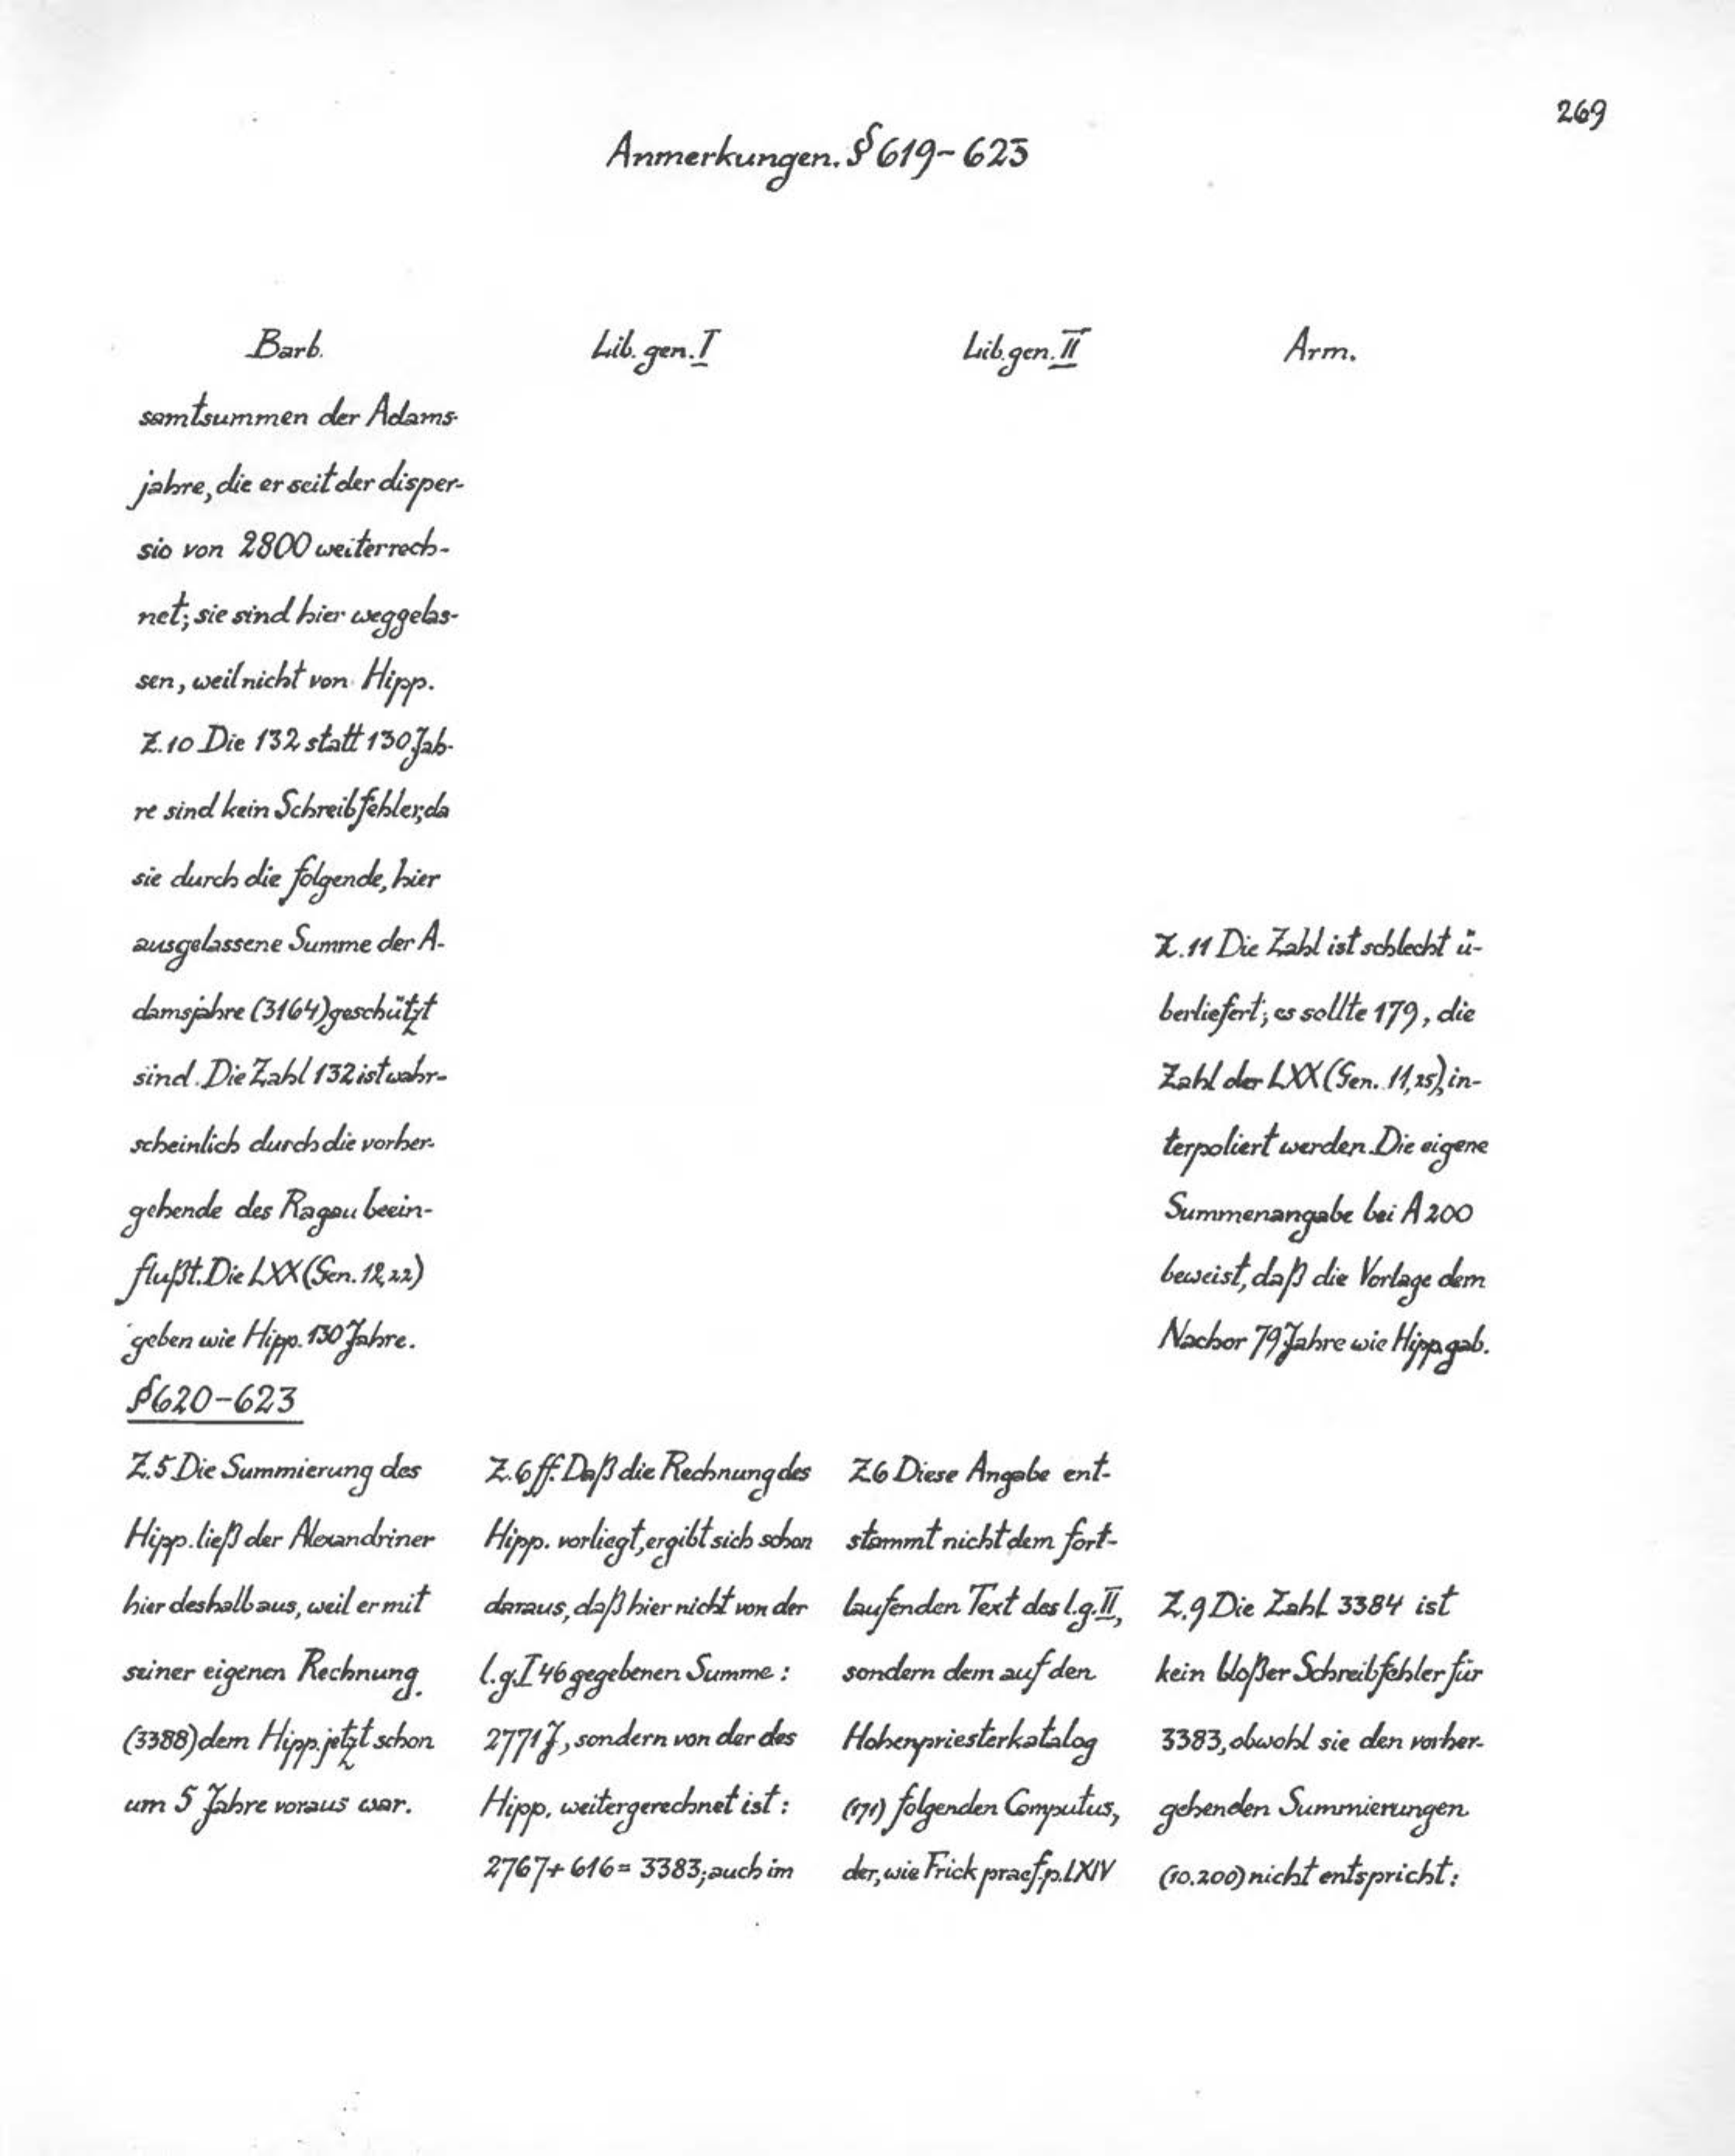 269
Anmerkungen. § 619-623
Barb.
samtsummen der Adams-
jahre, die er seit der disper-
sio von 2800 weiterrech-
net; sie sind hier weggelas-
sen, weil nicht von Hipp.
Z.10 Die 132 statt 130 Jah-
re sind kein Schreibfehler, da
sie durch die folgende, hier
ausgelassene Summe der A-
damsjahre (3164) geschützt
sind. Die Zahl 132 ist wahr-
scheinlich durch die vorher-
gehende des Ragau beein-
flußt. Die LXX (Gen. 12,22)
geben wie Hipp. 130 Jahre.
Lib. gen. I
Lib. gen. II
Arm.
Z.11 Die Zahl ist schlecht ü-
berliefert; es sollte 179, die
Zahl der LXX (Gen. 11,25), in-
terpoliert werden. Die eigene
Summenangabe bei A 200
beweist, daß die Vorlage dem
Nachor 79 Jahre wie Hipp. gab.
§620-623
Z.5 Die Summierung des
Hipp. ließ der Alexandriner
hier deshalb aus, weil er mit
seiner eigenen Rechnung
(3388) dem Hipp. jetzt schon
um 5 Jahre voraus war.
Z.6 ff. Daß die Rechnung des
Hipp. vorliegt, ergibt sich schon
daraus, daß hier nicht von der
l.g. I 46 gegebenen Summe:
2771 J, sondern von der des
Hipp. weitergerechnet ist:
2767+616=3383; auch im
Z.6 Diese Angabe ent-
stammt nicht dem fort-
laufenden Text des l.g. II,
sondern dem auf den
Hohenpriesterkatalog
(171) folgenden Computus,
der, wie Frick praef. p. LXIV
Z.9 Die Zahl 3384 ist
kein bloßer Schreibfehler für
3383, obwohl sie den vorher-
gehenden Summierungen
(10.200) nicht entspricht: